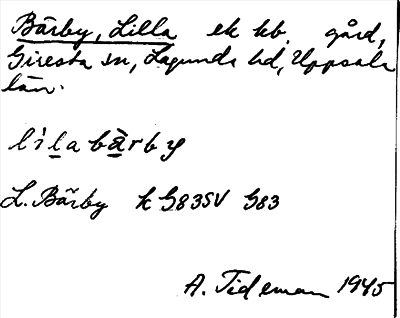 Bärby, Lilla ek kb. gård,
Giresta sn, Lagunda hd, Uppsala
län.
lìlabàrby
L. Bärby k G83SV G83
A. Tideman 1945